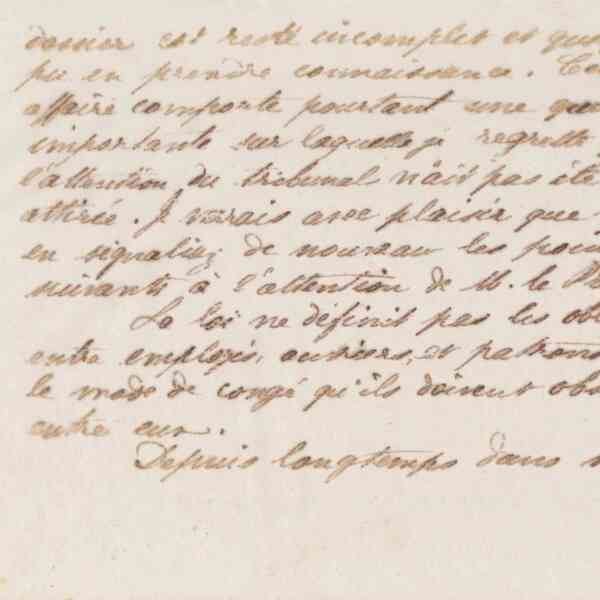 dossier est resté incomplet et que
pu en prendre connaissance. Ce
affaire comporte pourtant une que
importante sur laquelle je regrette
l'attention du tribunal n'ait pas été
attirée. Je verrais avec plaisir que
en signaliez de nouveau les poin
suivants à l'attention de M. le
La loi ne définit pas les obl
entre employés, ouvriers, et patrons
le mode de congé qu'ils doivent obs
entre eux.
Depuis longtemps dans